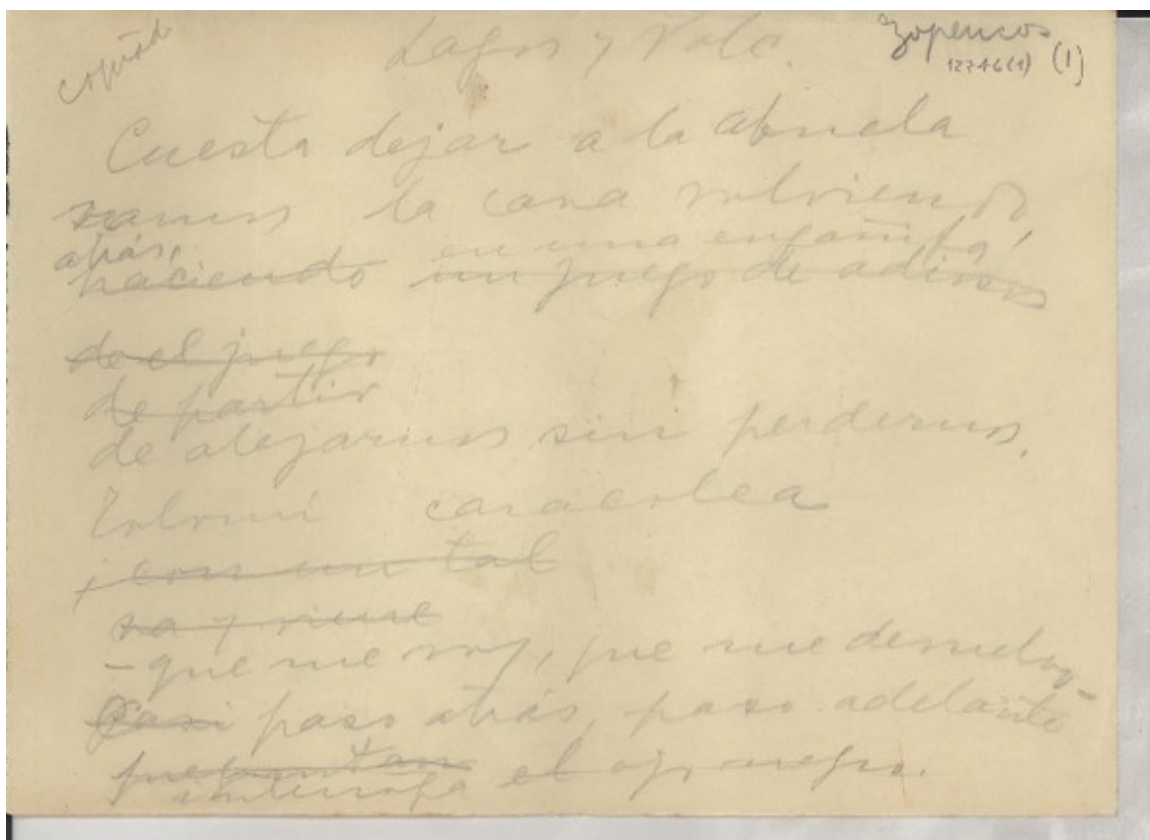 copiado
Lagos y Volc.
Zopencos
12746(1) (1)
Cuesta dejar a la abuela
vamos la cara volviendo
atrás, en una engañifa,
haciendo un juego de adioses
de el juego
de partir
de alejarnos sin perdernos.
caracolea
con un tal
va y viene
- que me voy, que me devuelvo -
Casi paso atrás, paso adelante
preguntan
interroga el ojo negro.